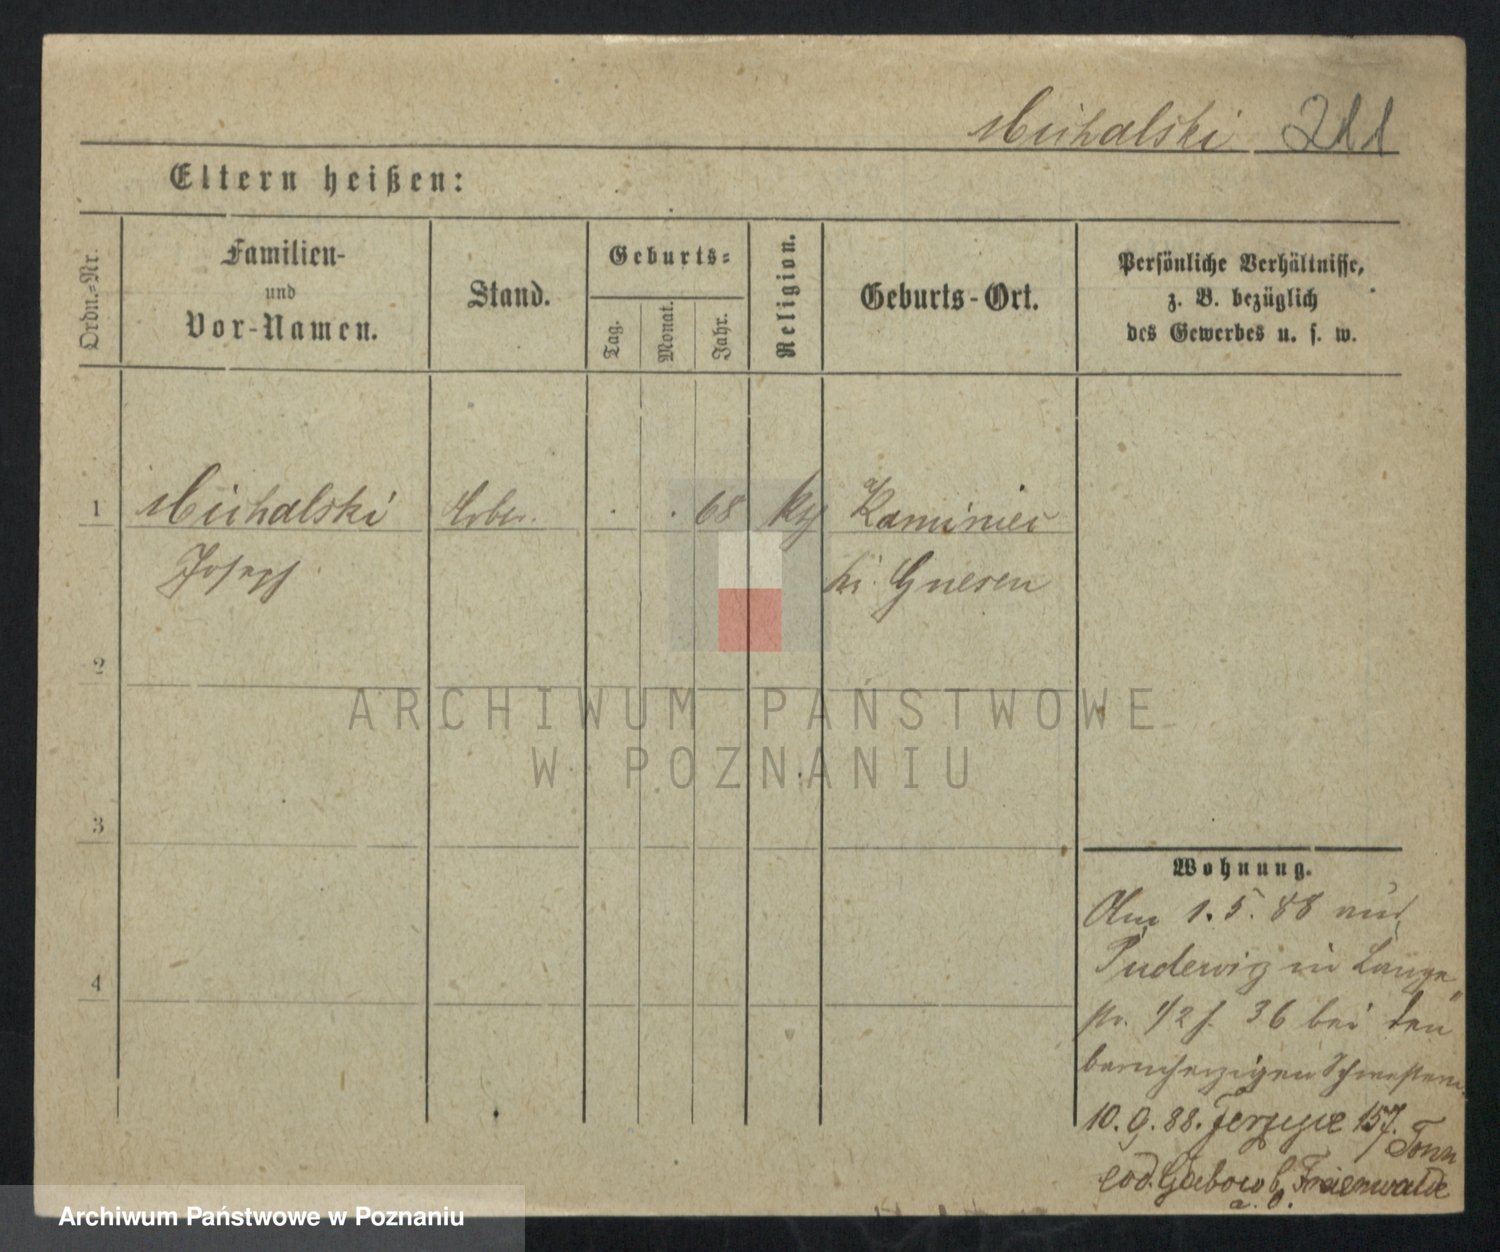 Michalski 211
Eltern heißen:
Ordn.-Nr.
Familien-
und
Vor-Namen.
Stand.
Geburts-
Tag.
Monat.
Jahr.
Religion.
Geburts-Ort.
Persönliche Verhältnisse,
z. B. bezüglich
des Gewerbes u. s. w.
1 Michalski . . 68 Kaminiec
Joseph bei Gnesen
2
ARCHIWUM PAŃSTWOWE
W POZNANIU
3
4
Wohnung.
Am 1. 5. 88 aus
Pudewig in Lange
str. 1/2 f. 36 bei den
barmherzigen Schwestern
10. 9. 88. Jerzyce 157.
Freienwalde
a. O.
Archiwum Państwowe w Poznaniu